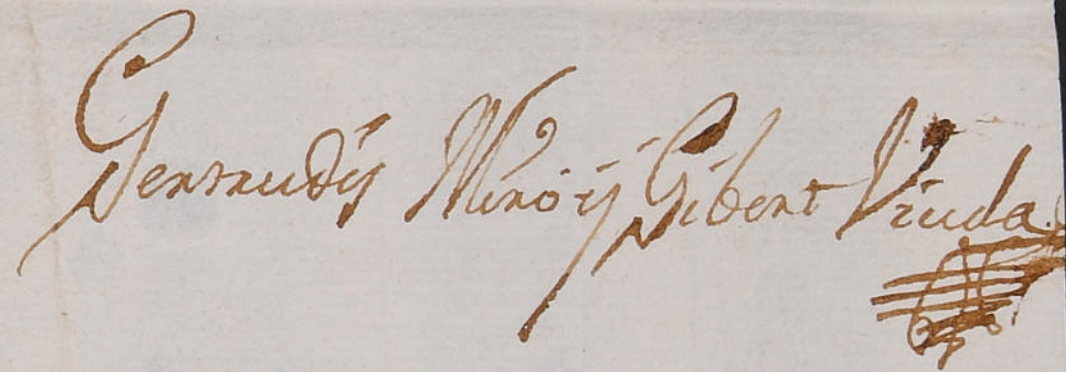 Gertrudis Miró y Gibert Viuda